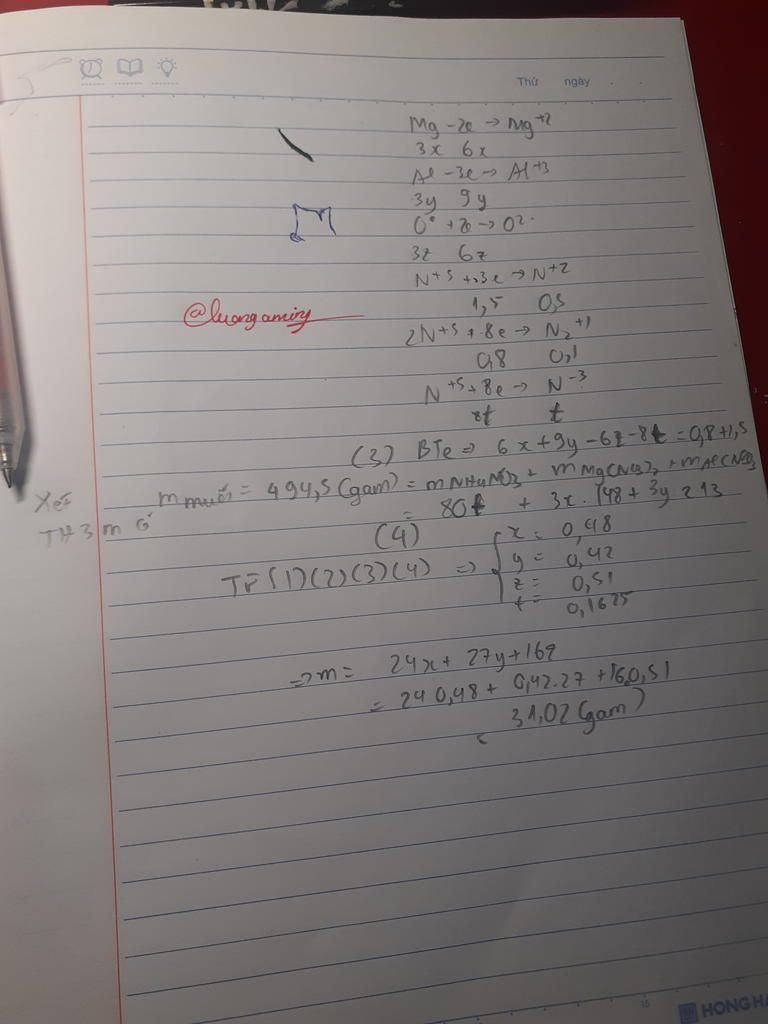 Thứ ngày
Mg - 2e → Mg+2
3x 6x
Al - 3e → Al+3
3y 9y
O° + 2e → O2-
3z 6z
N+5 + 3e → N+2
1,5 0,5
@luongaming
2N+5 + 8e → N2+1
0,8 0,1
N+5 + 8e → N-3
8t t
(3) BTe => 6x + 9y - 6z - 8t = 0,8 + 1,5
Xét m muối = 494,5 (gam) = mNH4NO3 + mMg(NO3)2 + mAl(NO3)3
TH 3 m = 80t + 3x . 148 + 3y 213
(4)
Từ (1)(2)(3)(4) => x = 0,48
y = 0,42
z = 0,51
t = 0,1625
=> m = 24x + 27y + 16z
= 24 0,48 + 0,42.27 + 16.0,51
31,02 (gam)
HONG HA